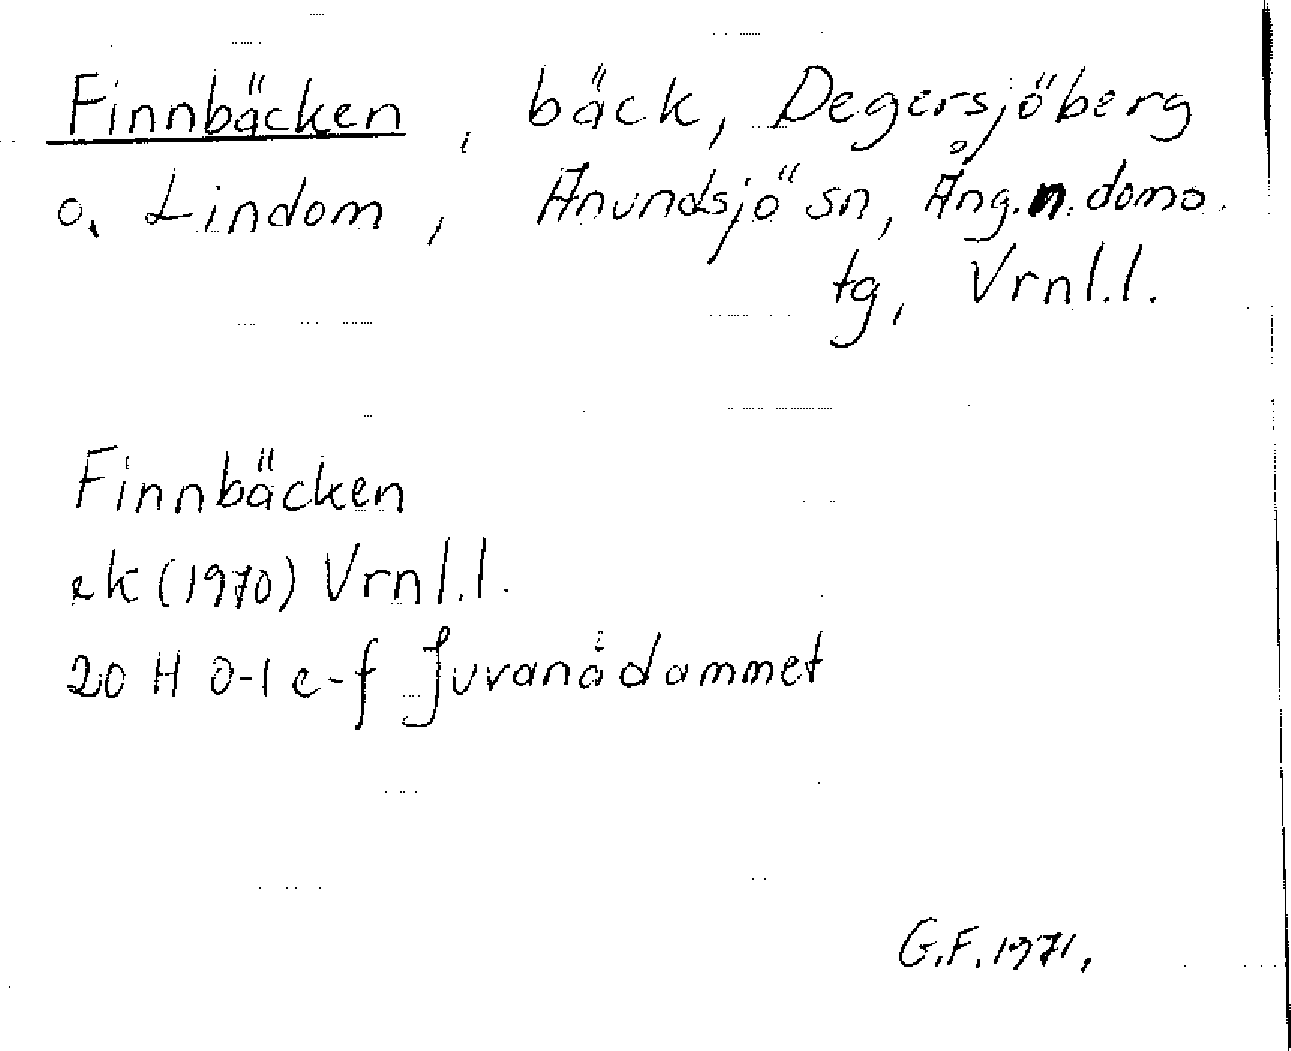 Finnbäcken, bäck, Degersjöberg
o. Lindom, Anundsjö sn, Ång.n.doms.
tg, Vrnl.l.
Finnbäcken
ek (1970) Vrnl.l.
20 H 0-1 e-f Juvanådammet
G.F. 1971.